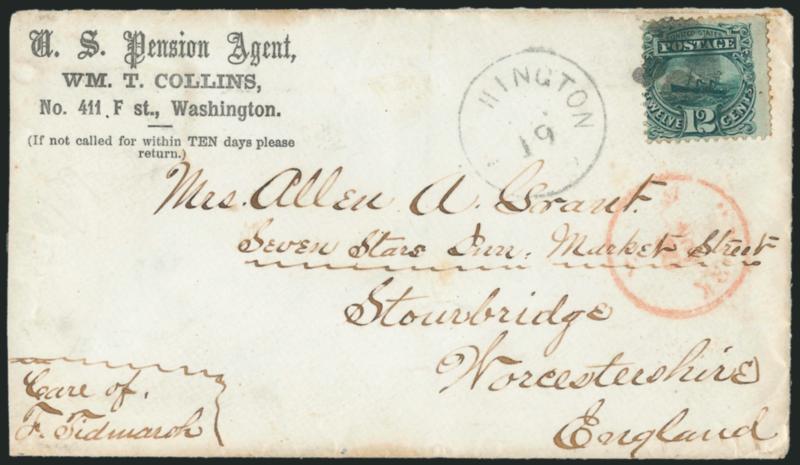 U. S. Pension Agent,
WM. T. COLLINS,
No. 411 F st., Washington.
(If not called for within TEN days please
return.)
HINGTON
19
UNITED STATES
POSTAGE
TWELVE 12 CENTS
Mrs. Allen A. Grant.
Seven Stars Inn. Market Street
Stourbridge
Worcestershire
England
Care of.
F. Tidmarsh